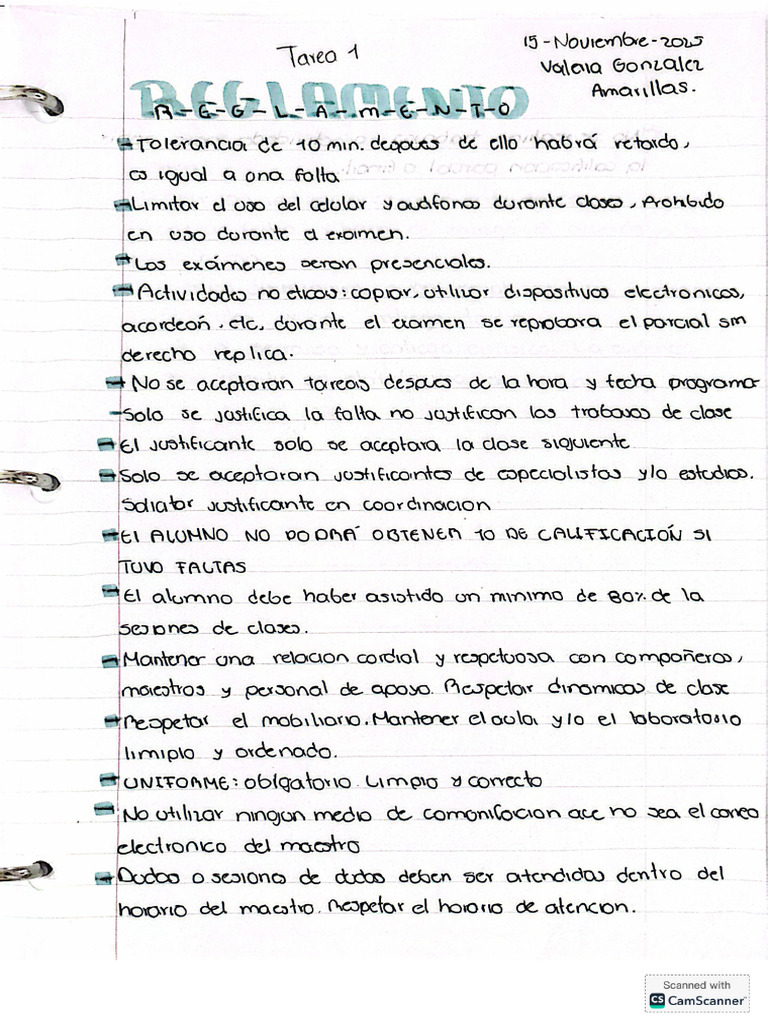 Tarea 1
15-Noviembre-2025
Valeria Gonzalez
Amarillas.
REGLAMENTO
R-E-G-L-A-M-E-N-T-O
-Tolerancia de 10 min. despues de ello habrá retardo,
es igual a una falta
-Limitar el uso del celular y audifonos durante clases, Prohibido
en uso durante el examen.
-Los exámenes seran presenciales.
-Actividades no eticas: copiar, utilizar dispositivos electronicos,
acordeon, etc, durante el examen se reprobara el parcial sin
derecho replica.
-No se aceptaran tareas despues de la hora y fecha programa-
-Solo se justifica la falta no justifican los trabajos de clase
-El justificante solo se aceptara la clase siguiente
-Solo se aceptaran justificantes de especialistas y/o estudios.
Solicitar justificante en coordinacion
-El ALUMNO NO PODRÁ OBTENER 10 DE CALIFICACIÓN SI
TUVO FALTAS
-El alumno debe haber asistido un minimo de 80% de la
sesiones de clases.
-Mantener una relacion cordial y respetuosa con compañeros,
maestros y personal de apoyo. Respetar dinamicas de clase
-Respetar el mobiliario. Mantener el aula y/o el laboratorio
limpio y ordenado.
-UNIFORME: obligatorio. Limpio y correcto
-No utilizar ningun medio de comunicacion que no sea el correo
electronico del maestro
-Dudas o sesiones de dudas deben ser atendidas dentro del
horario del maestro. Respetar el horario de atencion.
Scanned with
CS CamScanner